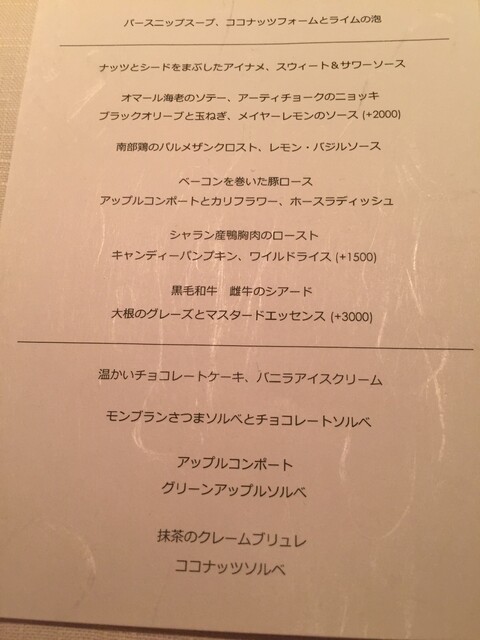 パースニップスープ、ココナッツフォームとライムの泡
ナッツとシードをまぶしたアイナメ、スウィート＆サワーソース
オマール海老のソテー、アーティチョークのニョッキ
ブラックオリーブと玉ねぎ、メイヤーレモンのソース (+2000)
南部鶏のパルメザンクロスト、レモン・バジルソース
ベーコンを巻いた豚ロース
アップルコンポートとカリフラワー、ホースラディッシュ
シャラン産鴨胸肉のロースト
キャンディーパンプキン、ワイルドライス (+1500)
黒毛和牛　雌牛のシアード
大根のグレーズとマスタードエッセンス (+3000)
温かいチョコレートケーキ、バニラアイスクリーム
モンブランさつまソルベとチョコレートソルベ
アップルコンポート
グリーンアップルソルベ
抹茶のクレームブリュレ
ココナッツソルベ